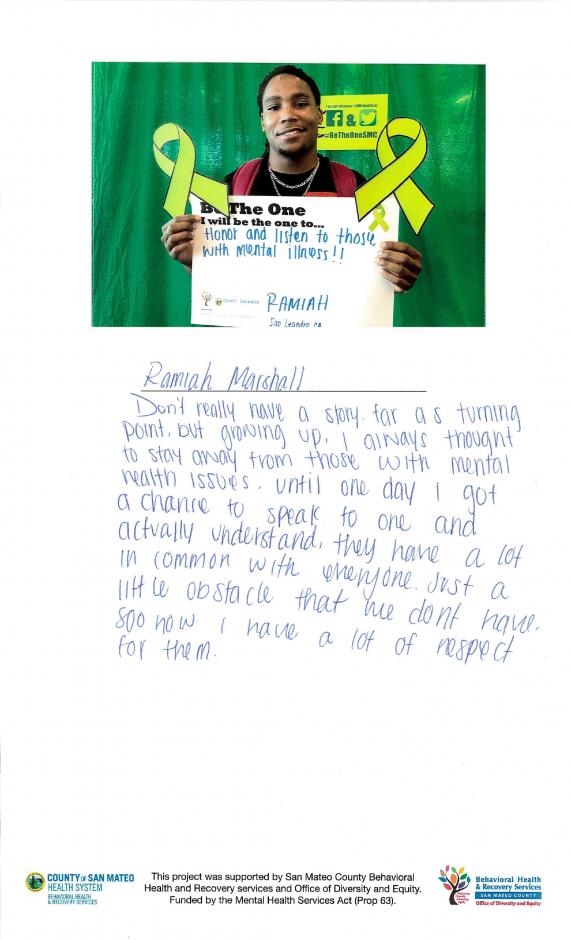 #BeTheOneSMC
Be The One
I will be the one to...
Honor and listen to those
with mental illness!!
COUNTY OF SAN MATEO
RAMIAH
San Leandro ca
Ramiah Marshall
Don't really have a story far as turning
point. but growing up, I always thought
to stay away from those with mental
health issues. until one day i got
a chance to speak to one and
actually understand, they have a lot
in common with everyone. Just a
little obstacle that we dont have.
soo now i have a lot of respect
for them.
COUNTY OF SAN MATEO
HEALTH SYSTEM
BEHAVIORAL HEALTH
& RECOVERY SERVICES
This project was supported by San Mateo County Behavioral
Health and Recovery services and Office of Diversity and Equity.
Funded by the Mental Health Services Act (Prop 63).
Behavioral Health
& Recovery Services
SAN MATEO COUNTY
Office of Diversity and Equity